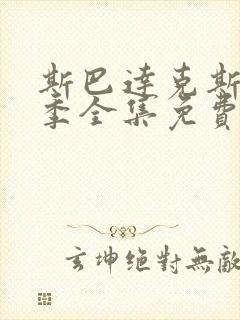 斯巴達克斯
季全集免費
玄坤絕對無敵